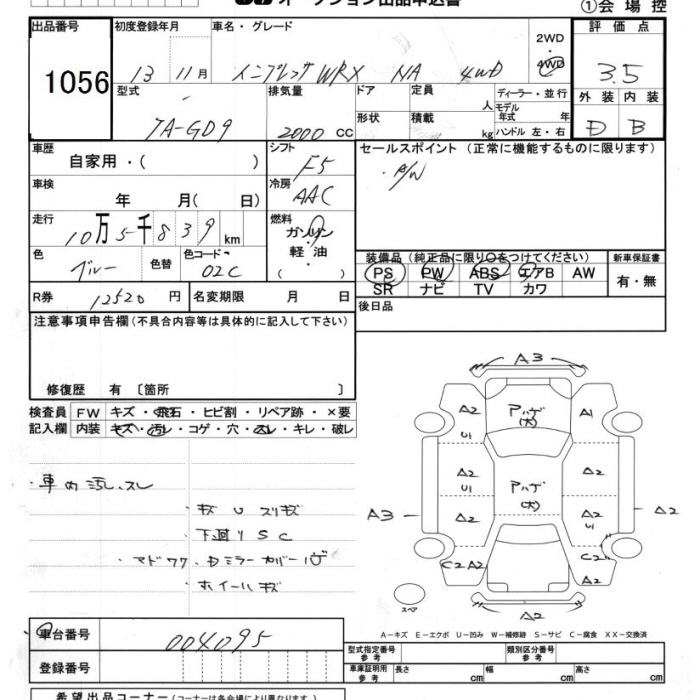 オークション出品申込書
①会場控
出品番号 初度登録年月 車名・グレード 2WD 評価点
1056 13 11月 インプレッサ WRX NA 4WD 4WD 3.5
型式 排気量 ドア 定員 人 ディーラー・並行 外装 内装
TA-GD9 2000 CC 形状 積載 kg モデル年式 年 ハンドル 左・右 D B
車歴 自家用・( ) シフト F5 セールスポイント (正常に機能するものに限ります)
・P/W
車検 年 月(日) 冷房 AAC
走行 10万5千839km 燃料 ガソリン・軽油・( )
色 ブルー 色替 色コード 02C
装備品 (純正品に限り○をつけてください) 新車保証書
PS PW ABS エアB AW 有・無
SR ナビ TV カワ
R券 12520円 名変期限 月 日
後日品
注意事項申告欄(不具合内容等は具体的に記入して下さい)
修復歴 有 〔箇所 〕
検査員 FW キズ・飛石・ヒビ割・リペア跡・×要
記入欄 内装 キズ・汚レ・コゲ・穴・スレ・キレ・破レ
・車内汚レ、スレ
・キズ U スリキズ
・下廻り S C
・ホイールキズ
A3
A2 アハゲ(大) A1
U1
A2 アハゲ(大) A2
U1
A3 A2 A2 A2
U1
C2 A2 C2
A2
スペア A2
A−キズ E−エクボ U−凹み W−補修跡 S−サビ C−腐食 XX−交換済
車台番号 004095
登録番号
型式指定番号 参考 類別区分番号 参考
車庫証明用 参考 長さ cm 幅 cm 高さ cm
希望出品コーナー(コーナーは各会場により異なります)